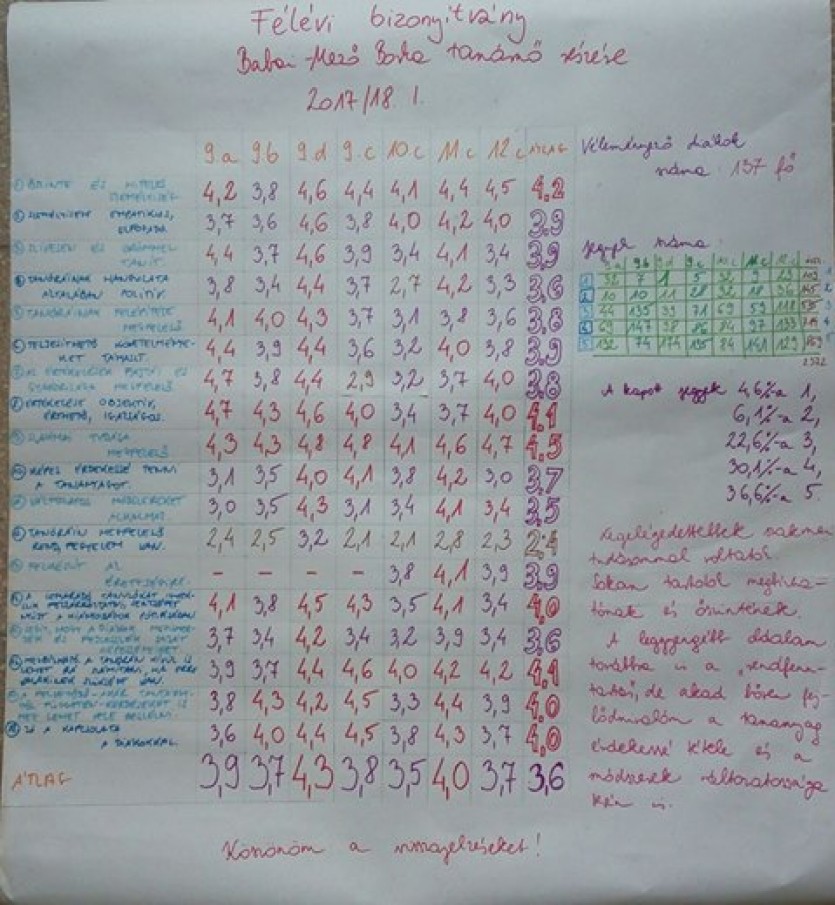 Félévi bizonyítvány
Babai-Mező Borka tanárnő részére
2017/18. I.
9.a 9.b 9.d 9.c 10.c 11.c 12.c ÁTLAG
① ŐSZINTE ÉS HITELES SZEMÉLYISÉG. 4,2 3,8 4,6 4,4 4,1 4,4 4,5 4,2
EMPATIKUS, ELFOGADÓ. 3,7 3,6 4,6 3,8 4,0 4,2 4,0 3,9
SZÍVESEN ÉS ÖRÖMMEL TANÍT. 4,4 3,7 4,6 3,9 3,4 4,1 3,4 3,9
TANÓRÁINAK HANGULATA ÁLTALÁBAN POZITÍV. 3,8 3,4 4,4 3,7 2,7 4,2 3,3 3,6
TANÓRÁINAK FELÉPÍTÉSE MEGFELELŐ. 4,1 4,0 4,3 3,7 3,1 3,8 3,6 3,8
TELJESÍTHETŐ KÖVETELMÉNYEKET TÁMASZT. 4,4 3,9 4,4 3,6 3,2 4,0 3,8 3,9
AZ ÉRTÉKELÉSEK FAJTÁI ÉS GYAKORISÁGA MEGFELELŐ. 4,7 3,8 4,4 2,9 3,2 3,7 4,0 3,8
ÉRTÉKELÉSE OBJEKTÍV, ÉRTHETŐ, IGAZSÁGOS. 4,7 4,3 4,6 4,0 3,4 3,7 4,0 4,1
SZAKMAI TUDÁSA MEGFELELŐ. 4,3 4,3 4,8 4,8 4,1 4,6 4,7 4,5
KÉPES ÉRDEKESSÉ TENNI A TANANYAGOT. 3,1 3,5 4,0 4,1 3,8 4,2 3,0 3,7
VÁLTOZATOS MÓDSZEREKET ALKALMAZ. 3,0 3,5 4,3 3,1 3,4 4,1 3,4 3,5
TANÓRÁIN MEGFELELŐ REND, FEGYELEM VAN. 2,4 2,5 3,2 2,1 2,1 2,8 2,3 2,4
FELKÉSZÍT AZ ÉRETTSÉGIRE. – – – – 3,8 4,1 3,9 3,9
4,1 3,8 4,5 4,3 3,5 4,1 3,4 4,0
3,7 3,4 4,2 3,4 3,2 3,9 3,4 3,6
3,9 3,7 4,4 4,6 4,0 4,2 4,2 4,1
3,8 4,3 4,2 4,5 3,3 4,4 3,9 4,0
JÓ A KAPCSOLATA A DIÁKOKKAL. 3,6 4,0 4,4 4,5 3,8 4,3 3,7 4,0
ÁTLAG 3,9 3,7 4,3 3,8 3,5 4,0 3,7 3,6
Véleményező diákok
száma: 137 fő
Jegyek száma:
9.a 9.b 9.d 9.c 10.c 11.c 12.c
1
2 10 10 11 28 32 18 36
3 44 135 39 71 69 59 118
4 69 147 98 86 84 97 133
5 132 74 174 135 84 141 129
A kapott jegyek 4,6%-a 1,
6,1%-a 2,
22,6%-a 3,
30,1%-a 4,
36,6%-a 5.
Legelégedettebbek szakmai
tudásommal voltatok.
Sokan tartotok megbízha-
tónak és őszintének.
A leggyengébb oldalam
továbbra is a „rendfenn-
tartás", de akad bőven fej-
lődnivalóm a tananyag
érdekessé tétele és a
módszerek változatossága
terén is.
Köszönöm a visszajelzéseket!